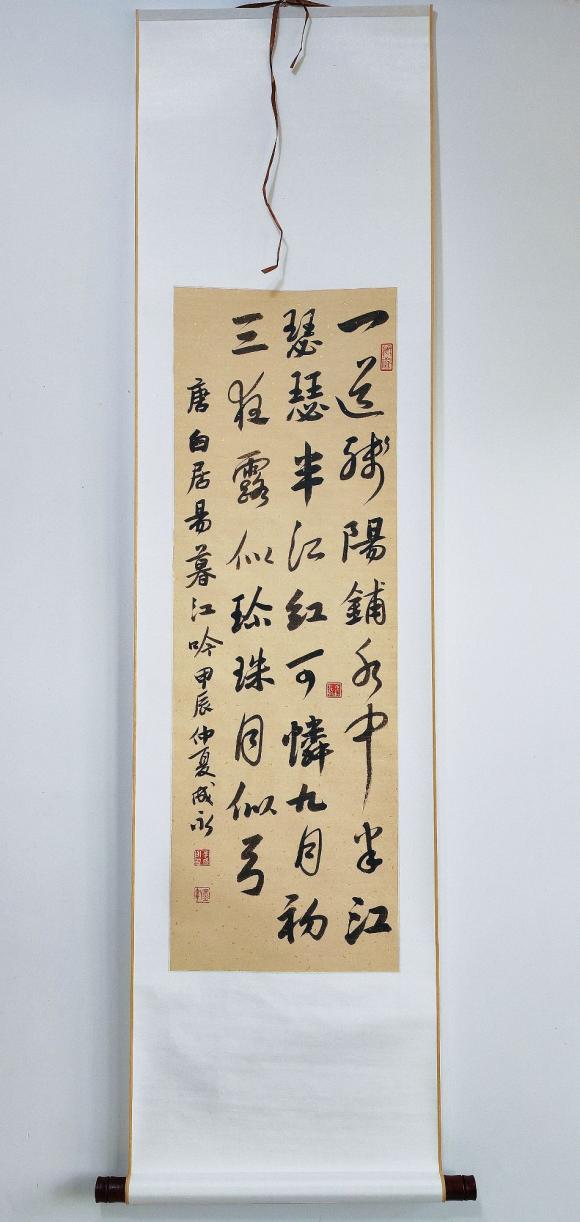 一道殘陽鋪水中半江
瑟瑟半江紅可憐九月初
三夜露似珍珠月似弓
唐白居易暮江吟甲辰仲夏成永